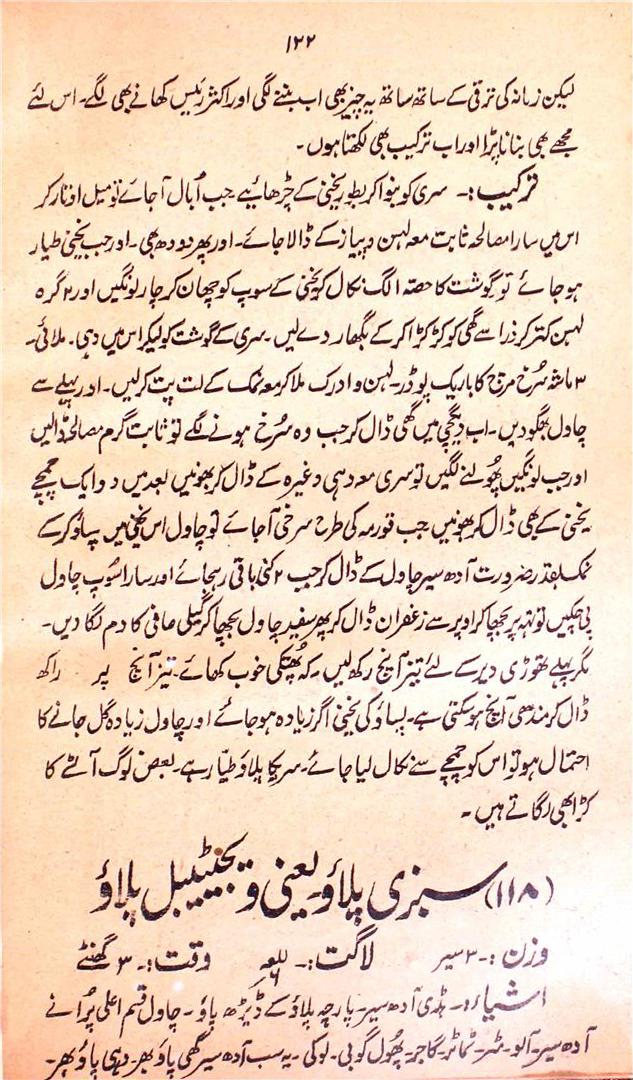 ۱۲۲
لیکن زمانہ کی ترقی کے ساتھ ساتھ یہ چیز بھی اب بننے لگی اور اکثر رئیس کھانے بھی لگے۔ اس لئے
مجھے بھی بنانا پڑا اور اب ترکیب بھی لکھتا ہوں۔
ترکیب:۔ سری کو بنوا کر بطور یخنی کے چڑھائیے جب اُبال آجائے تو میل اوتار کر
اس میں سارا مصالحہ ثابت معہ لہسن و پیاز کے ڈالا جائے۔ اور پھر دودھ بھی۔ اور جب یخنی طیار
ہو جائے تو گوشت کا حصہ الگ نکال کر یخنی کے سوپ کو چھان کر چار لونگیں اور ۲ گرہ
لہسن کتر کر ذرا سے گھی کو کڑکڑا کر کے بگھار دے لیں۔ سری کے گوشت کو لیکر اس میں دہی۔ ملائی۔
۳ ماشہ سُرخ مرچ کا باریک پوڈر۔ لہسن و ادرک ملا کر معہ نمک کے لت پت کر لیں۔ اور پہلے سے
چاول بھگو دیں۔ اب دیگچی میں گھی ڈال کر جب وہ سُرخ ہونے لگے تو ثابت گرم مصالحہ ڈالیں
اور جب لونگیں پُھولنے لگیں تو سری معہ دہی وغیرہ کے ڈال کر بھونیں بعد میں دو ایک چمچے
یخنی کے بھی ڈال کر بھونیں جب قورمہ کی طرح سرخی آجائے تو چاول اس یخنی میں پساؤ کر کے
نمک بقدر ضرورت آدھ سیر چاول کے ڈال کر جب ۲ کنی باقی رہجائے اور سارا سُوپ چاول
پی چکیں تو تہہ پر بچھا کر اوپر سے زعفران ڈال کر پھر سفید چاول بچھا کر گیلی صافی کا دم لگا دیں۔
مگر پہلے تھوڑی دیر کے لئے تیز آنچ رکھ لیں۔ کہ پُھتکی خوب کھائے۔ تیز آنچ پر راکھ
ڈال کر مندھی آنچ ہو سکتی ہے۔ پساؤ کی یخنی اگر زیادہ ہو جائے اور چاول زیادہ گل جانے کا
احتمال ہو تو اس کو چمچے سے نکال لیا جائے۔ سر یکا پلاؤ طیّار ہے۔ بعض لوگ آٹے کا
کڑا بھی لگاتے ہیں۔
(۱۱۸) سبزی پلاؤ۔ یعنی ویجٹیبل پلاؤ
وزن:۔ ۳ سیر لاگت:۔ وقت:۔ ۳ گھنٹے
اشیاء:۔ ہڈی آدھ سیر۔ پارچہ پلاؤ کے ڈیڑھ پاؤ۔ چاول قسم اعلی پُرانے
آدھ سیر۔ آلو۔ مٹر۔ ٹماٹر۔ گاجر۔ پھول گوبی۔ لوکی۔ یہ سب آدھ سیر گھی پاؤ بھر۔ دہی پاؤ بھر۔